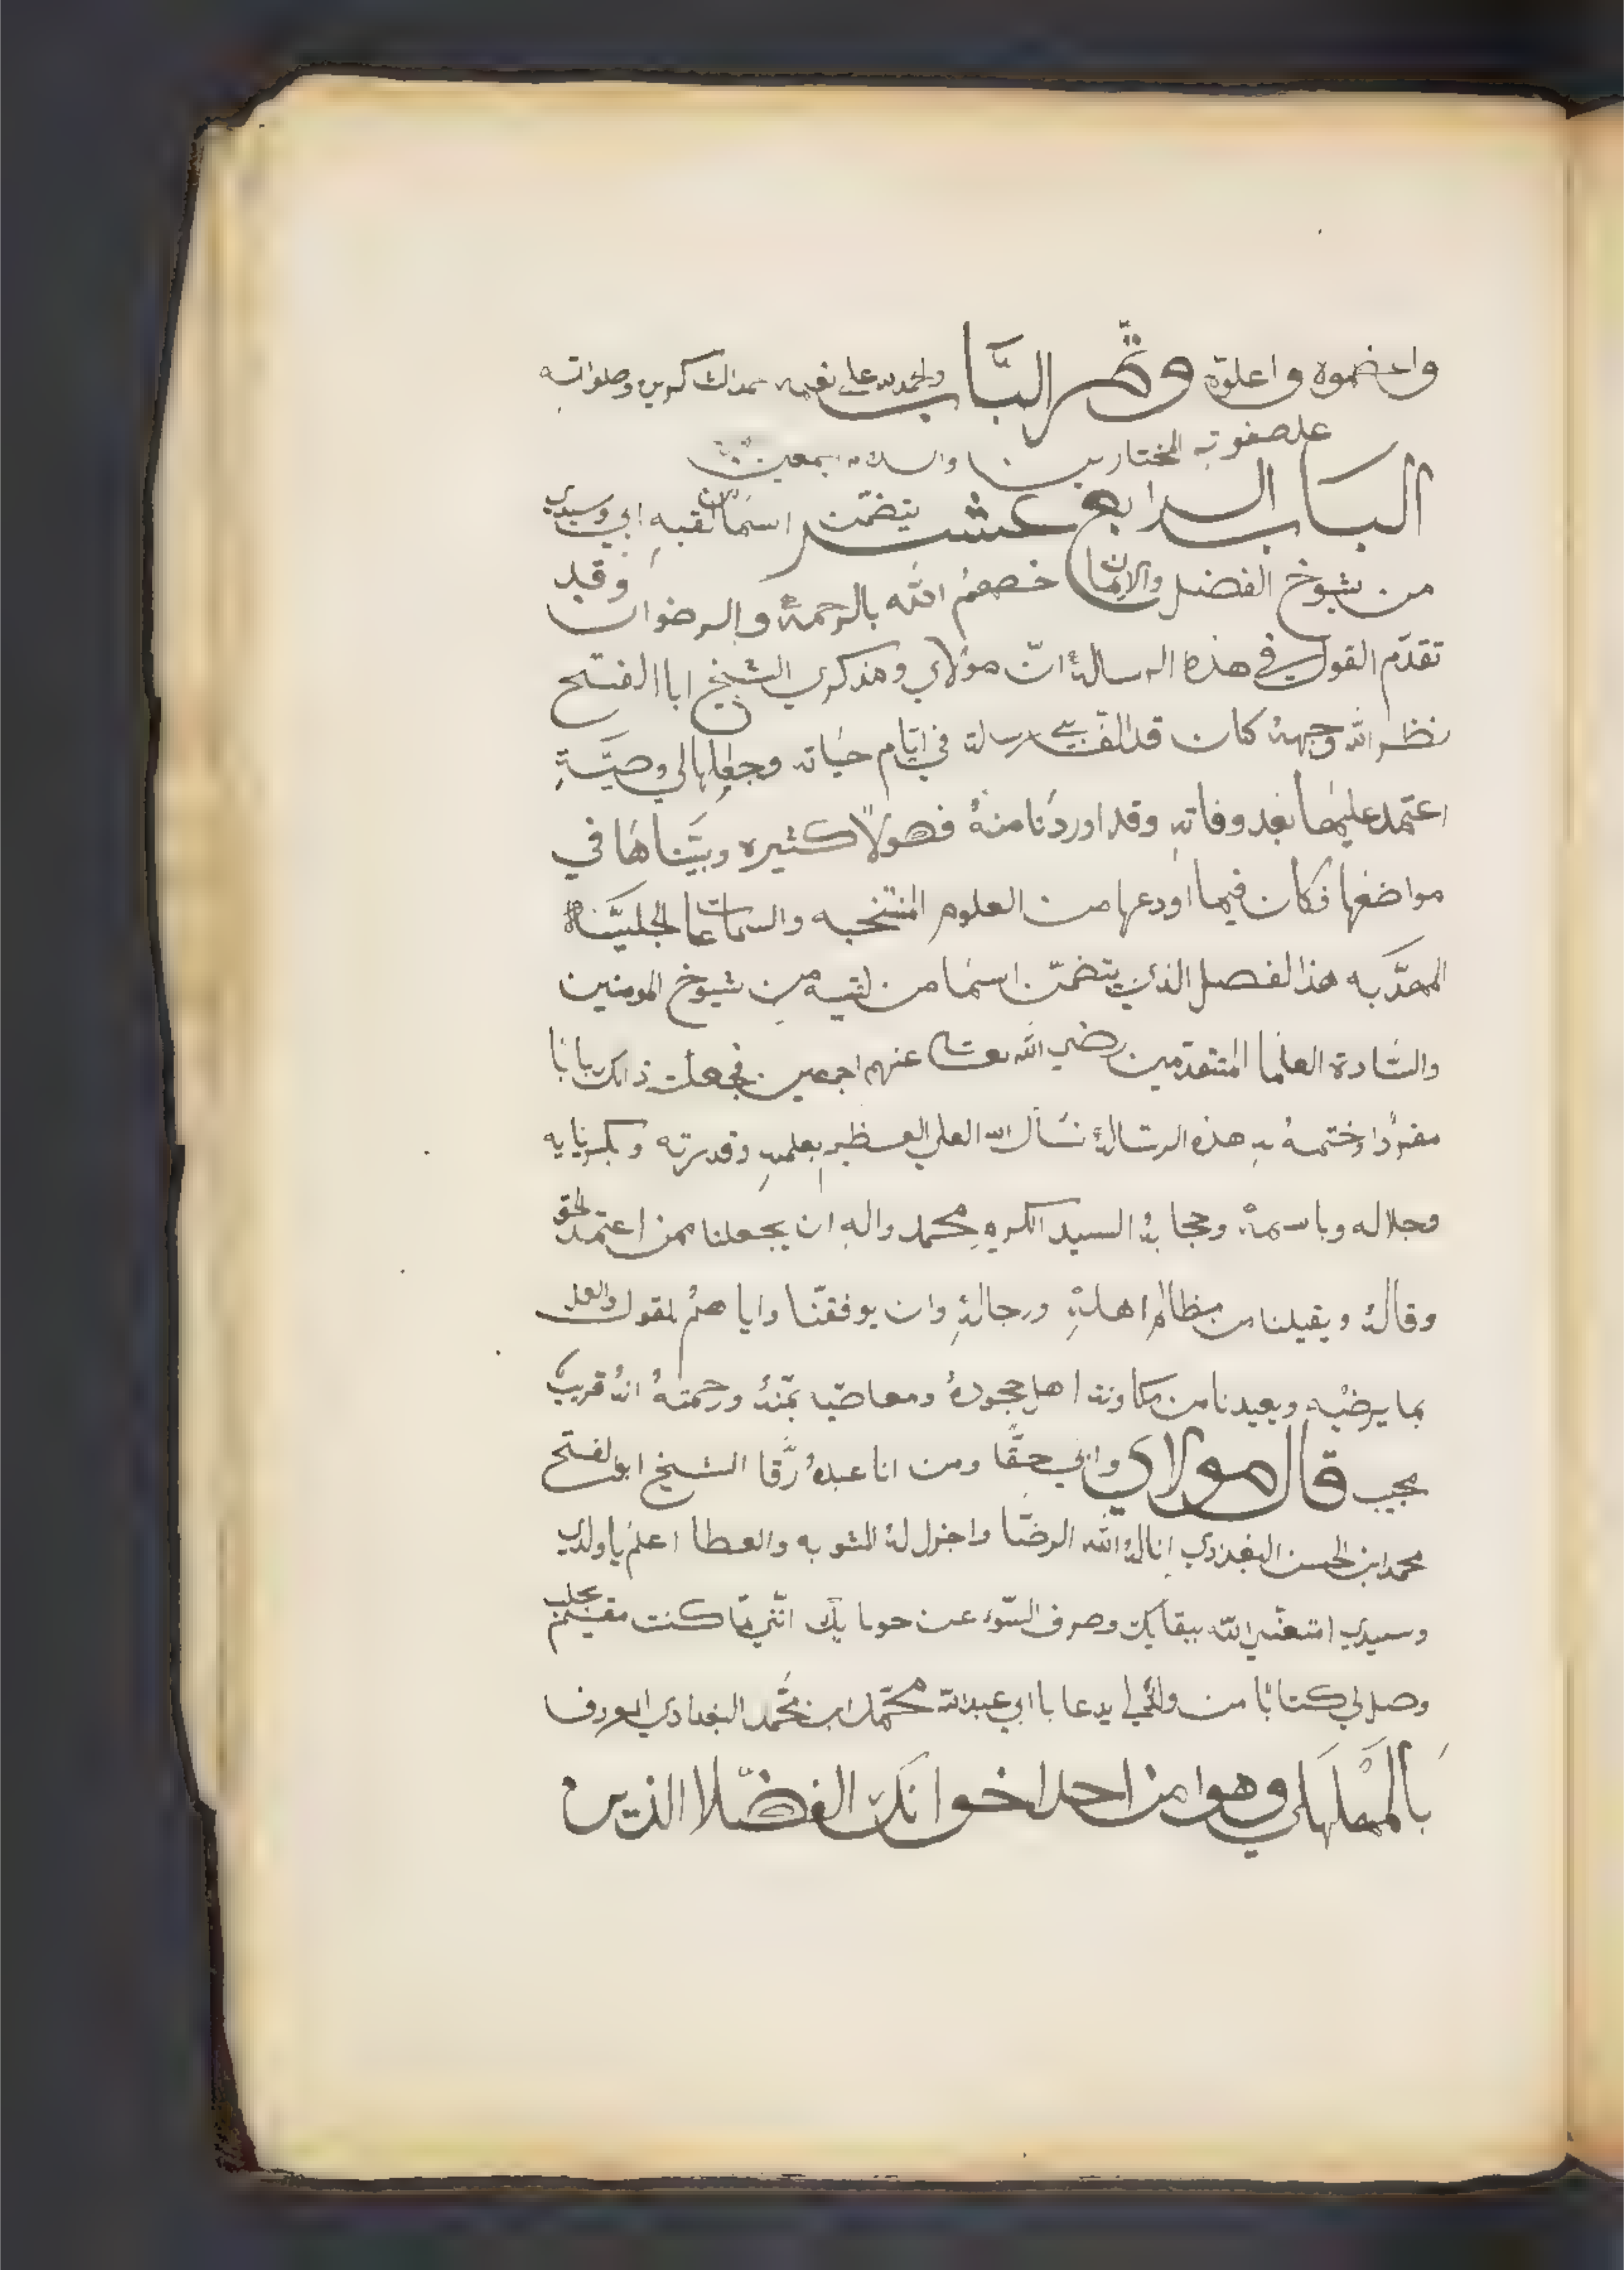 واعضموه واعلوة وتم الباب والحمد لله على نعمه حمد الشاكرين وصلواته
على صفوته المختارين والسلام اجمعين
الباب الرابع عشر يتضمّن اسما من لقيه ابي وسيدي
من شيوخ الفضل والايمان خصهم الله بالرحمة والرضوان وقد
تقدّم القول في هذه الرسالة انّ مولاي ومذكري الشيخ ابا الفتح
نظر الله وجهه كان قد الّف لي رسالة في ايّام حياته وجعلها لي وصيّةِ
اعتمد عليها بعد وفاته وقد اوردنا منهُ فصولاً كثيره وبيّناها في
مواضعها فكان فيما اودعها من العلوم المنتخبه والسماعات الجليّة
المهدّبه هذا لفصل الذي يتضمّن اسما من لقيه من شيوخ المومنين
والسّادة العلما المتقدّمين رضي الله تعالى عنهم اجمعين فجعلت ذالك بابًا
مفردًا وختمهُ به هذه الرسالة نسأل الله العلي العظيم بعلمهِ وقدرته وبكبريايه
وجلاله وباسمهُ وحجابهُ السيد الكريم محمد والهِ ان يجعلنا ممن اعتمد الحق
وقالهُ ويقيلنا من مظالم اهلهِ ورجالهِ وان يوفقنّا واياهمُ لقول والعمل
بما يرضيه وبعيدنا من اهل جحودهُ ومعاصيه بمنّهُ ورحمتهُ انهُ قريبُ
مجيب قال مولاي وابي حقًّا ومن انا عبدهُ رقًّا الشيخ ابو الفتح
محمد ابن الحسن البغدردي انالهُ الله الرضّا واجزل لهُ المثوبه والعطا اعلم ياولدي
وسيدي امتعنّي الله ببقايك وصرف السّوء عن حوبايك انّني لمّا كنت مقيم بحلب
وصل لي كتابًا من يدعا با ابي عبد الله محمّد ابن محُمّد البغدادي المعروف
بالمهلهلي وهوا من احد اخوانك الفضّلا الذين